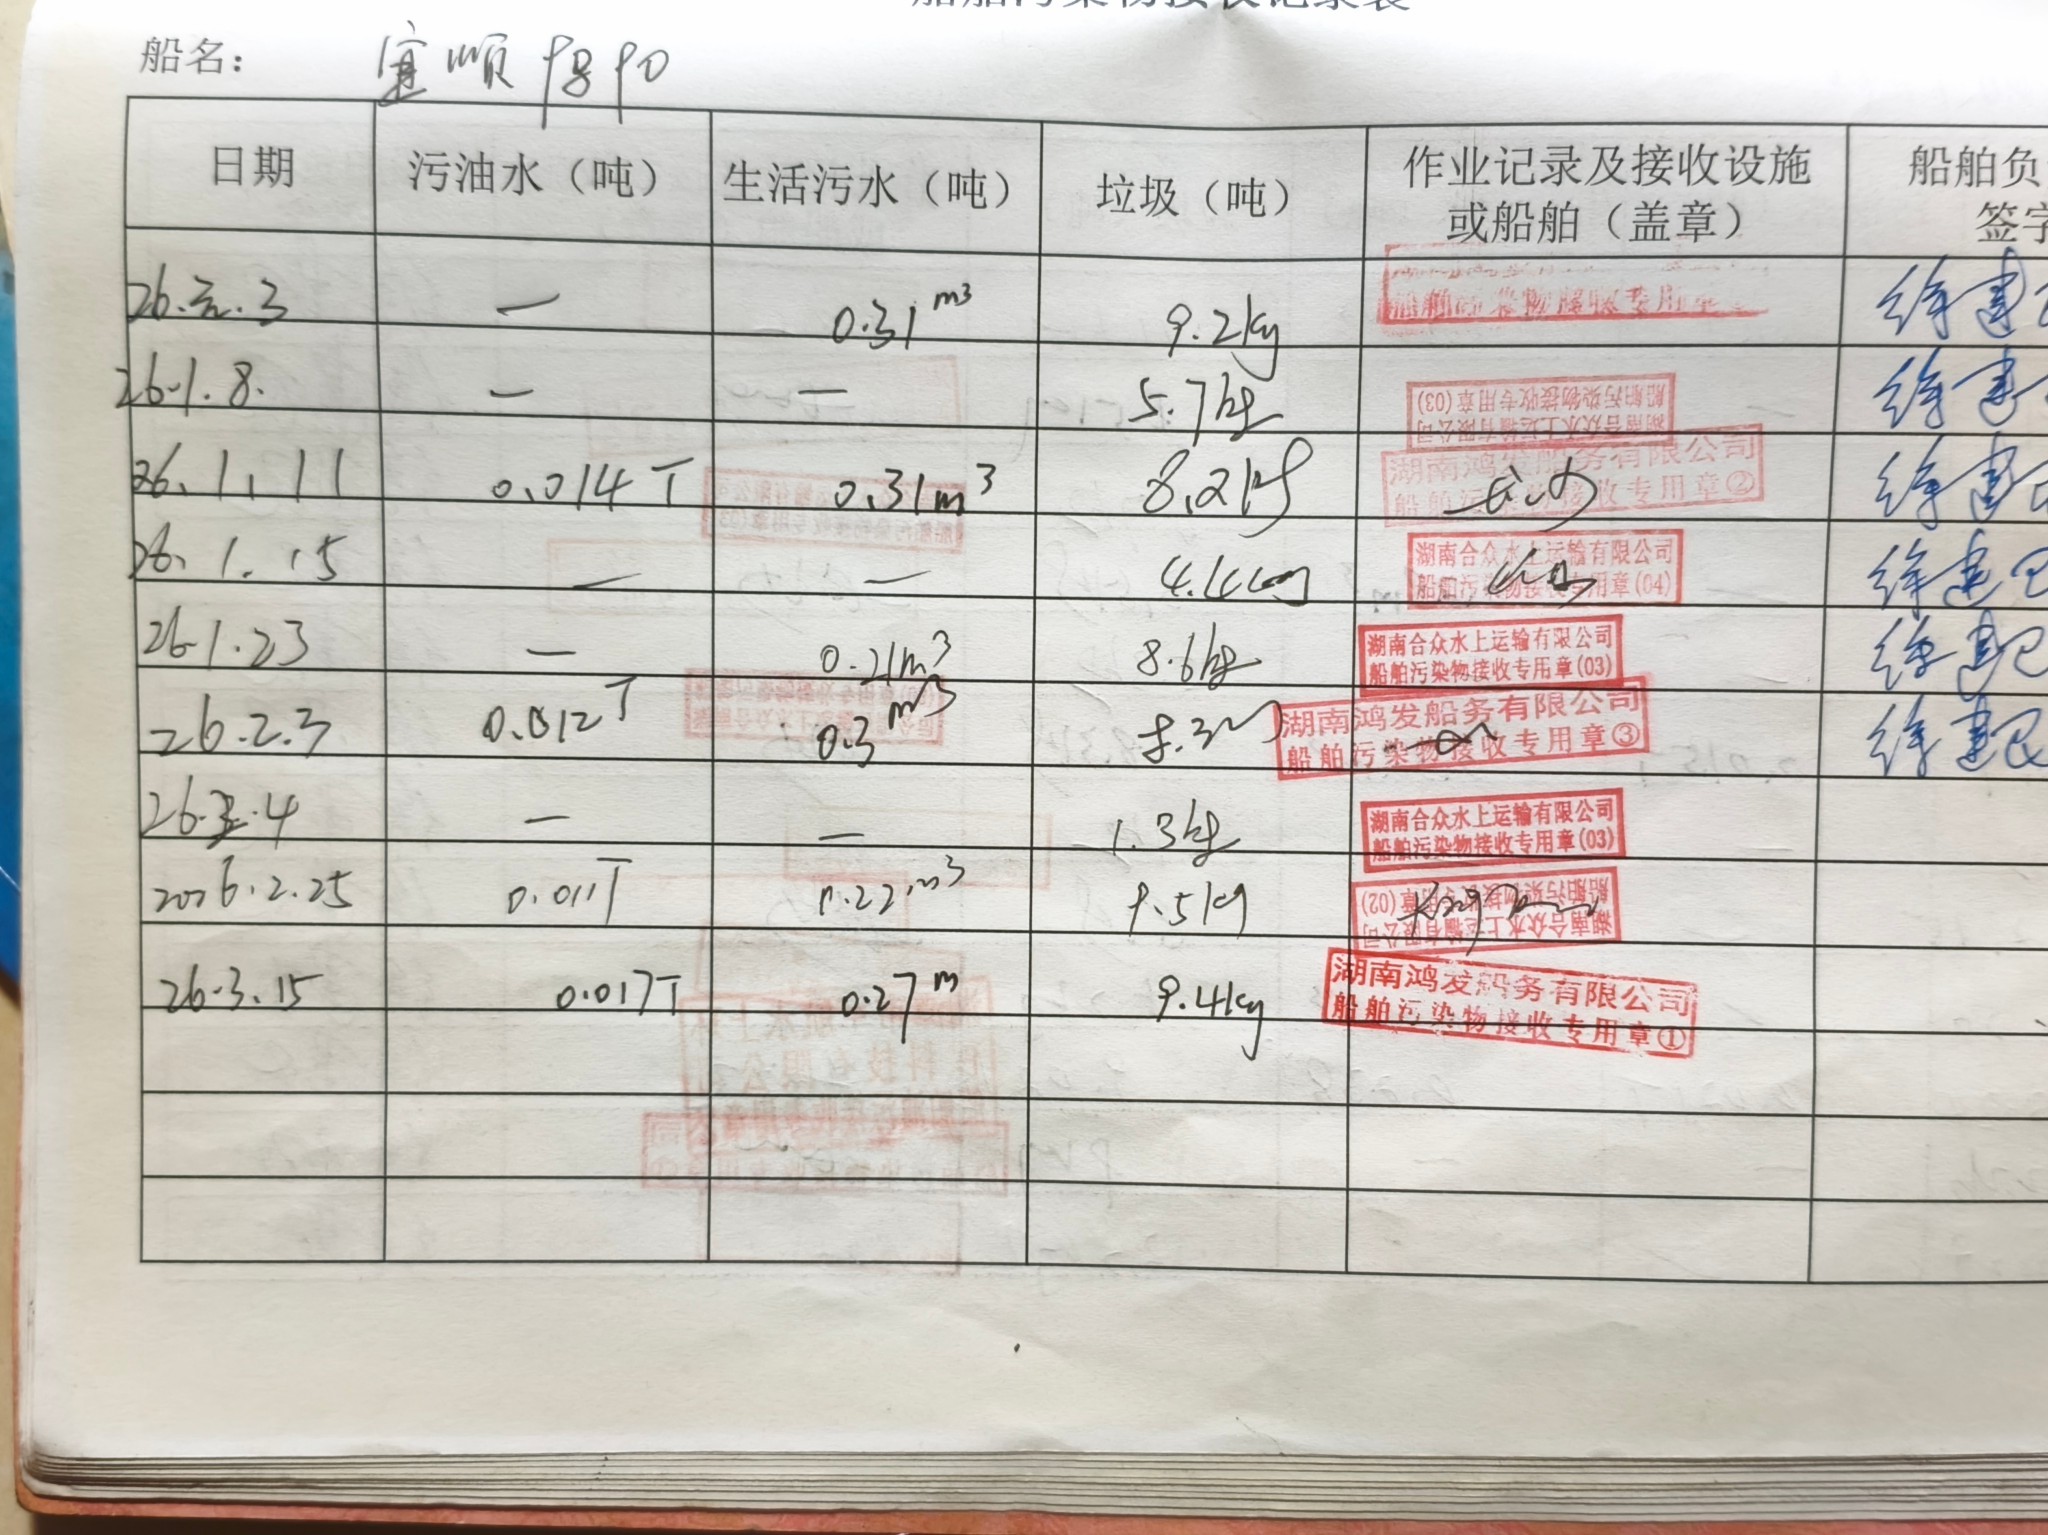 船舶污染物接收记录表
船名： 宜顺9890
日期 污油水（吨） 生活污水（吨） 垃圾（吨） 作业记录及接收设施或船舶（盖章） 船舶负 签字
26.元.3 — 0.31m³ 9.2kg 船舶污染物接收专用章
26.1.8. — — 5.7kg 湖南合众水上运输有限公司 船舶污染物接收专用章(03)
26.1.11 0.014T 0.31m³ 8.2kg 湖南鸿发船务有限公司 船舶污染物接收专用章②
26.1.15 — — 4.4kg 湖南合众水上运输有限公司 船舶污染物接收专用章(04)
26.1.23 — 0.21m³ 8.6kg 湖南合众水上运输有限公司 船舶污染物接收专用章(03)
26.2.3 0.012T 0.3m³ 湖南鸿发船务有限公司 船舶污染物接收专用章③
26.2.4 — — 1.3kg 湖南合众水上运输有限公司 船舶污染物接收专用章(03)
2026.2.25 0.011T 0.22m³ 9.5kg 湖南合众水上运输有限公司 船舶污染物接收专用章(02)
26.3.15 0.017T 0.27m 9.4kg 湖南鸿发船务有限公司 船舶污染物接收专用章①